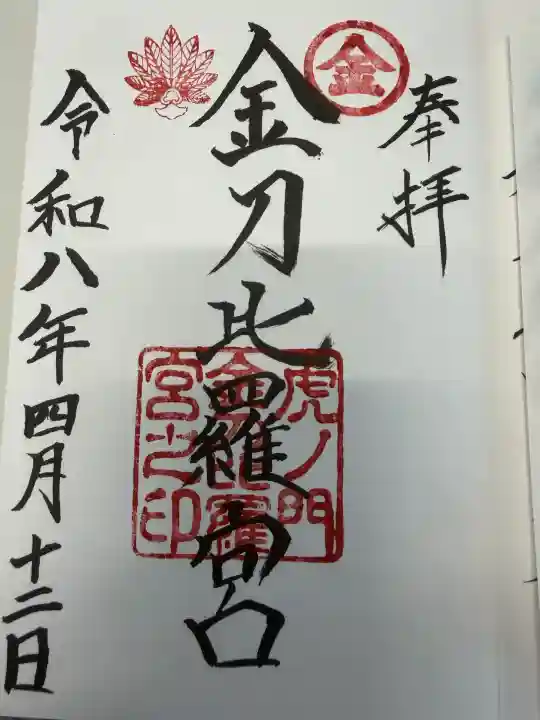 奉拝
金
金刀比羅宮
虎ノ門
金刀比羅
宮之印
令和八年四月十二日